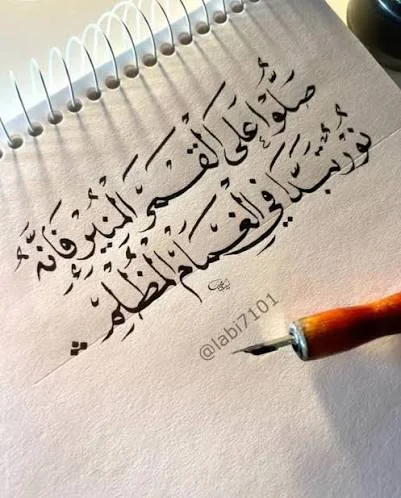 صَلُّوا عَلَى القَمَرِ المُنِيرِ فَإِنَّهُ
نُورٌ تَبَدَّى فِي الغَمَامِ المُظْلِمِ
@labi7101